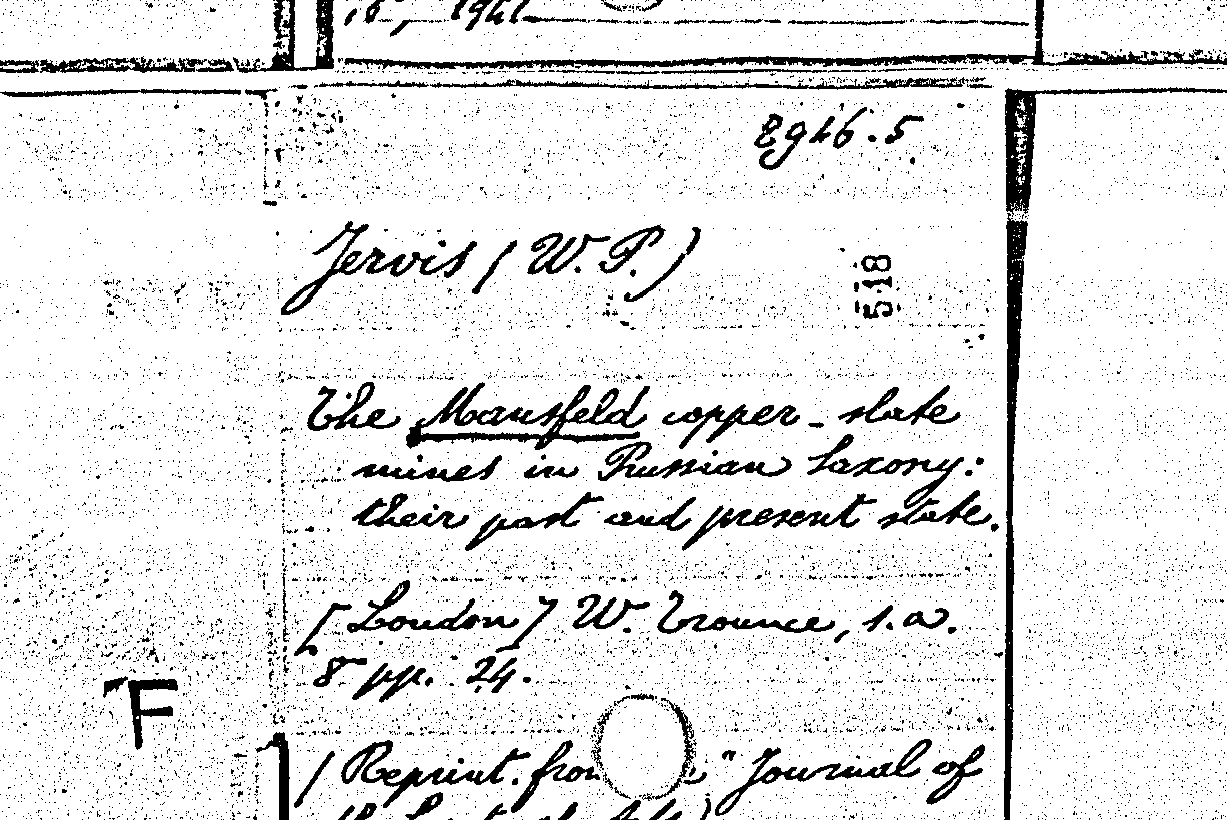 18, 1941
8946.5
Jervis (W. P.)
518
The Mansfeld copper-slate
mines in Prussian Saxony:
their past and present state.
[London] W. Trounce, s.a.
8° pp. 24.
F
(Reprint. from "Journal of